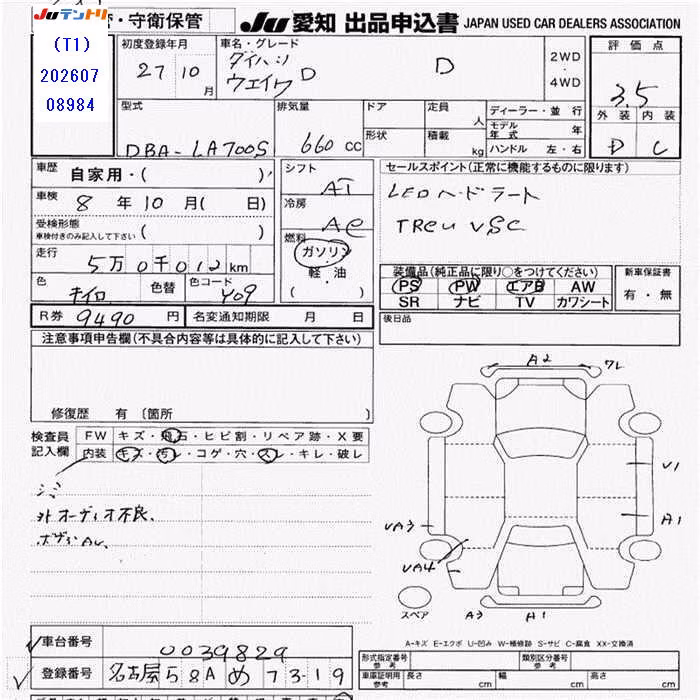 Juテントリ
・守衛保管
Ju 愛知 出品申込書 JAPAN USED CAR DEALERS ASSOCIATION
(T1)
202607
08984
初度登録年月
27 10 月
車名・グレード
ダイハツ
ウェイク D
D
2WD
・
4WD
評価点
3.5
外装 内装
D C
型式
DBA-LA700S
排気量
660 cc
ドア
形状
定員 人
積載 kg
ディーラー・並行
モデル年式 年
ハンドル 左・右
車歴
自家用・( )
車検
8 年 10 月( 日)
受検形態
車検付きのみ記入して下さい ( )
走行
5万0千012km
色 キイロ 色替 色コード Y09
シフト
AT
冷房
AC
燃料
ガソリン
軽・油
( )
セールスポイント(正常に機能するものに限ります)
LEDヘッドライト
TRCu VSC
装備品(純正品に限り○をつけてください)
PS PW エアB AW
SR ナビ TV カワシート
新車保証書
有・無
後日品
R券 9490 円 名変通知期限 月 日
注意事項申告欄(不具合内容等は具体的に記入して下さい)
修復歴 有〔箇所 〕
検査員
記入欄
FW キズ・飛石・ヒビ割・リペア跡・X要
内装 キズ・汚レ・コゲ・穴・スレ・キレ・破レ
シミ
外オーディオ不良、
A2 ワレ
U1
A1
UA3
UA4
スペア
A3 A1
A-キズ E-エクボ U-凹み W-補修跡 S-サビ C-腐食 XX-交換済
車台番号 0039829
登録番号 名古屋58A め 73-19
形式指定番号
参考
類別区分番号
参考
車庫証明用
参考
長さ cm 幅 cm 高さ cm